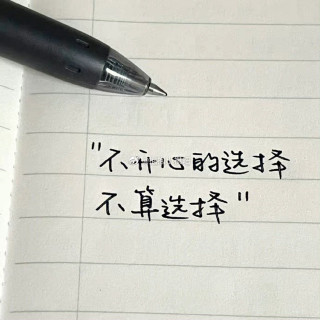 "不开心的选择
不算选择"